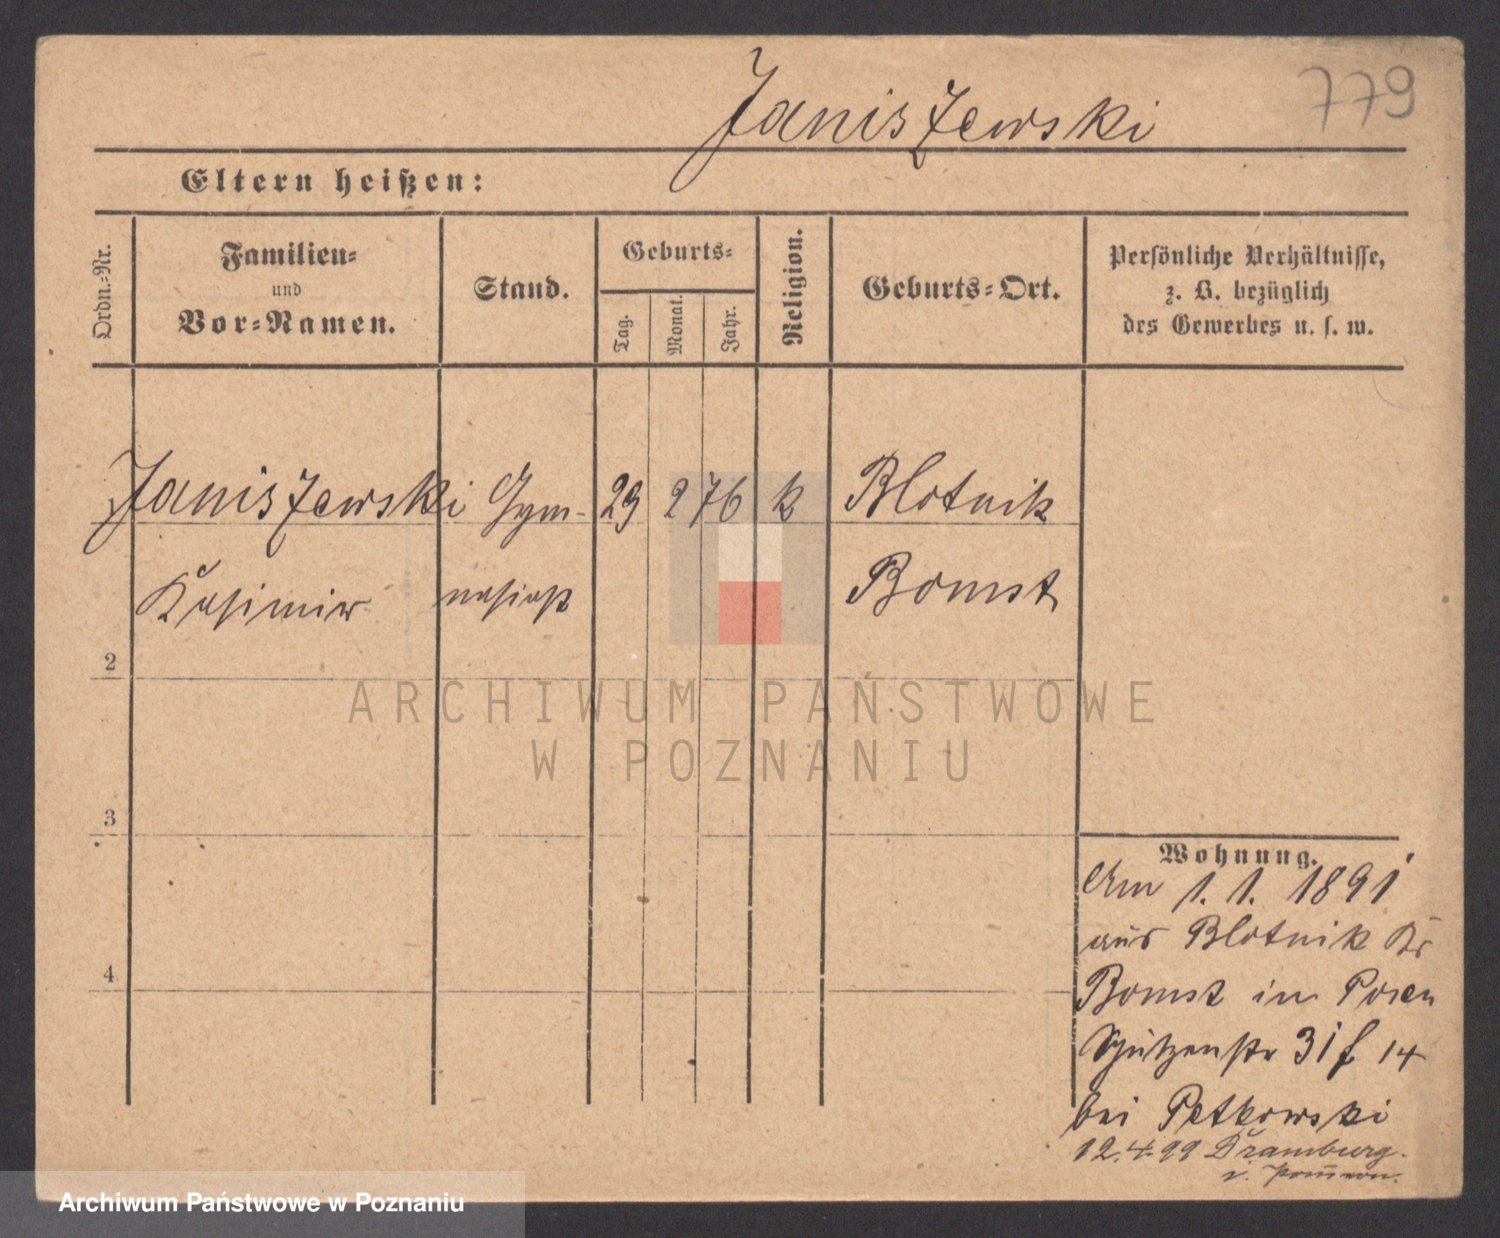 Janiszewski 779
Eltern heißen:
Ordn.-Nr.
Familien-
und
Vor-Namen.
Stand.
Geburts-
Tag.
Monat.
Jahr.
Religion.
Geburts-Ort.
Persönliche Verhältnisse,
z. B. bezüglich
des Gewerbes u. s. w.
Janiszewski Gym- 29 2 76 k Blotnik
Kasimir nasiast Bomst
2
ARCHIWUM PAŃSTWOWE
W POZNANIU
3
Wohnung.
Am 1. 1. 1891
aus Blotnik Kr
4
Bomst in Posen
Schützenstr 31 f 14
bei Petkowski
12.4.99 Dramburg.
i. Pommern.
Archiwum Państwowe w Poznaniu